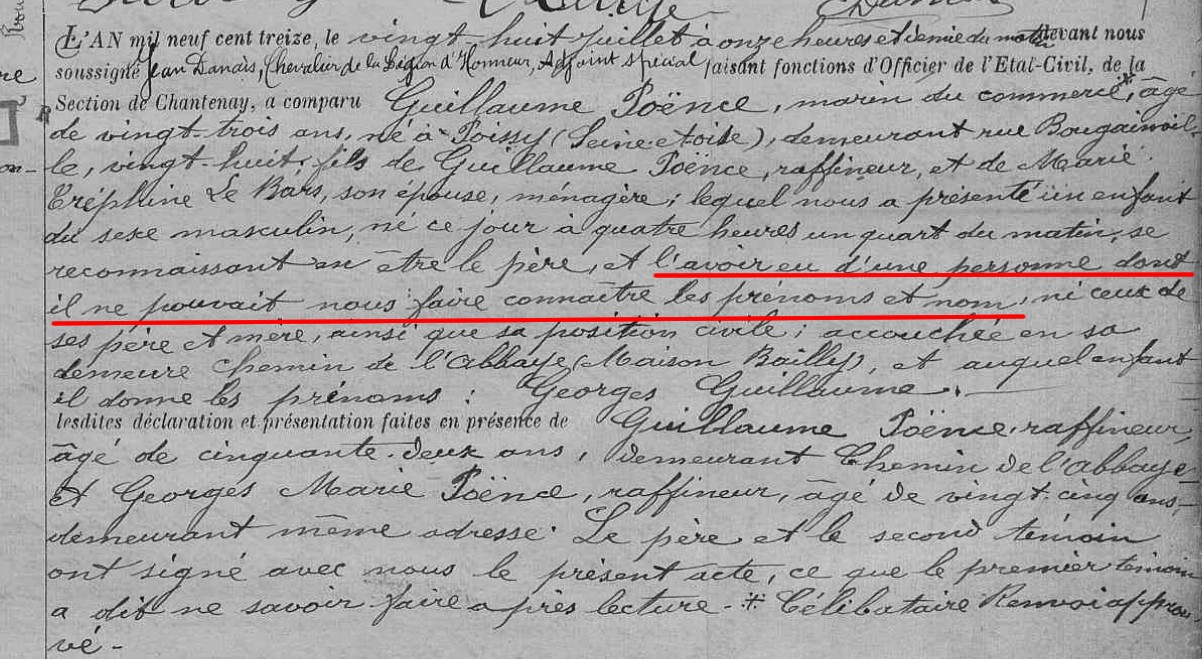 L'AN mil neuf cent treize, le vingt huit Juillet à onze heures et demie du matin devant nous
soussigné Jean Danais, Chevalier de la Légion d'Honneur, Adjoint Spécial faisant fonctions d'Officier de l'Etat-Civil, de la
Section de Chantenay, a comparu Guillaume Poënce, marin du commerce*, âgé
de vingt-trois ans, né à Poissy (Seine et oise), demeurant rue Bougainvil-
le, vingt-huit; fils de Guillaume Poënce, raffineur, et de Marie
Tréphine Le Bars, son épouse, ménagère; lequel nous a présenté un enfant
du sexe masculin, né ce jour à quatre heures un quart du matin, se
reconnaissant en être le père, et l'avoir eu d'une personne dont
il ne pouvait nous faire connaître les prénoms et nom, ni ceux de
ses père et mère, ainsi que sa position civile; accouchée en sa
demeure Chemin de l'Abbaye (Maison Bailly), et auquel enfant
il donne les prénoms: Georges Guillaume.
lesdites déclaration et présentation faites en présence de Guillaume Poënce, raffineur,
âgé de cinquante-deux ans, demeurant Chemin de l'abbaye
et Georges Marie Poënce, raffineur, âgé de vingt-cinq ans,
demeurant même adresse. Le père et le second témoin
ont signé avec nous le présent acte, ce que le premier témoin
a dit ne savoir faire après lecture - * Célibataire Renvoi approu-
vé -